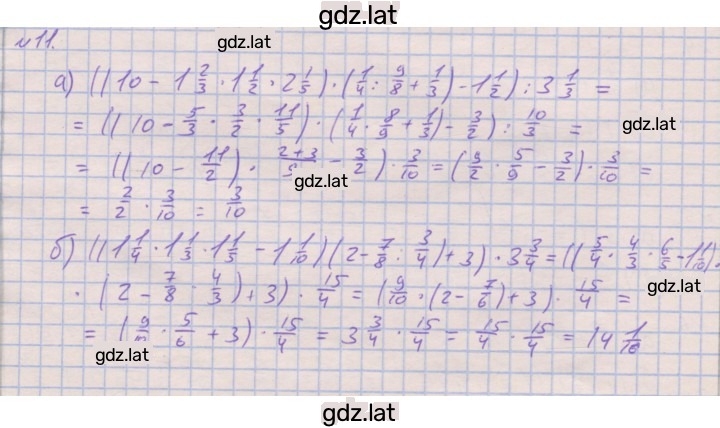 gdz.lat
№11.
gdz.lat
а) ((10 - 1 2/3 · 1 1/2 · 2 1/5) · (1/4 : 9/8 + 1/3) - 1 1/2) : 3 1/3 =
= ((10 - 5/3 · 3/2 · 11/5) · (1/4 · 8/9 + 1/3) - 3/2) : 10/3 =
gdz.lat
= ((10 - 11/2) · 2+3/9 - 3/2) · 3/10 = (9/2 · 5/9 - 3/2) · 3/10 =
gdz.lat
= 2/2 · 3/10 = 3/10
б) ((1 1/4 · 1 1/3 · 1 1/5 - 1 1/10)(2 - 7/8 : 3/4) + 3) · 3 3/4 = ((5/4 · 4/3 · 6/5 - 1 1/10) ·
· (2 - 7/8 · 4/3) + 3) · 15/4 = (9/10 · (2 - 7/6) + 3) · 15/4 =
gdz.lat
= (9/10 · 5/6 + 3) · 15/4 = 3 3/4 · 15/4 = 15/4 · 15/4 = 14 1/16
gdz.lat
gdz.lat